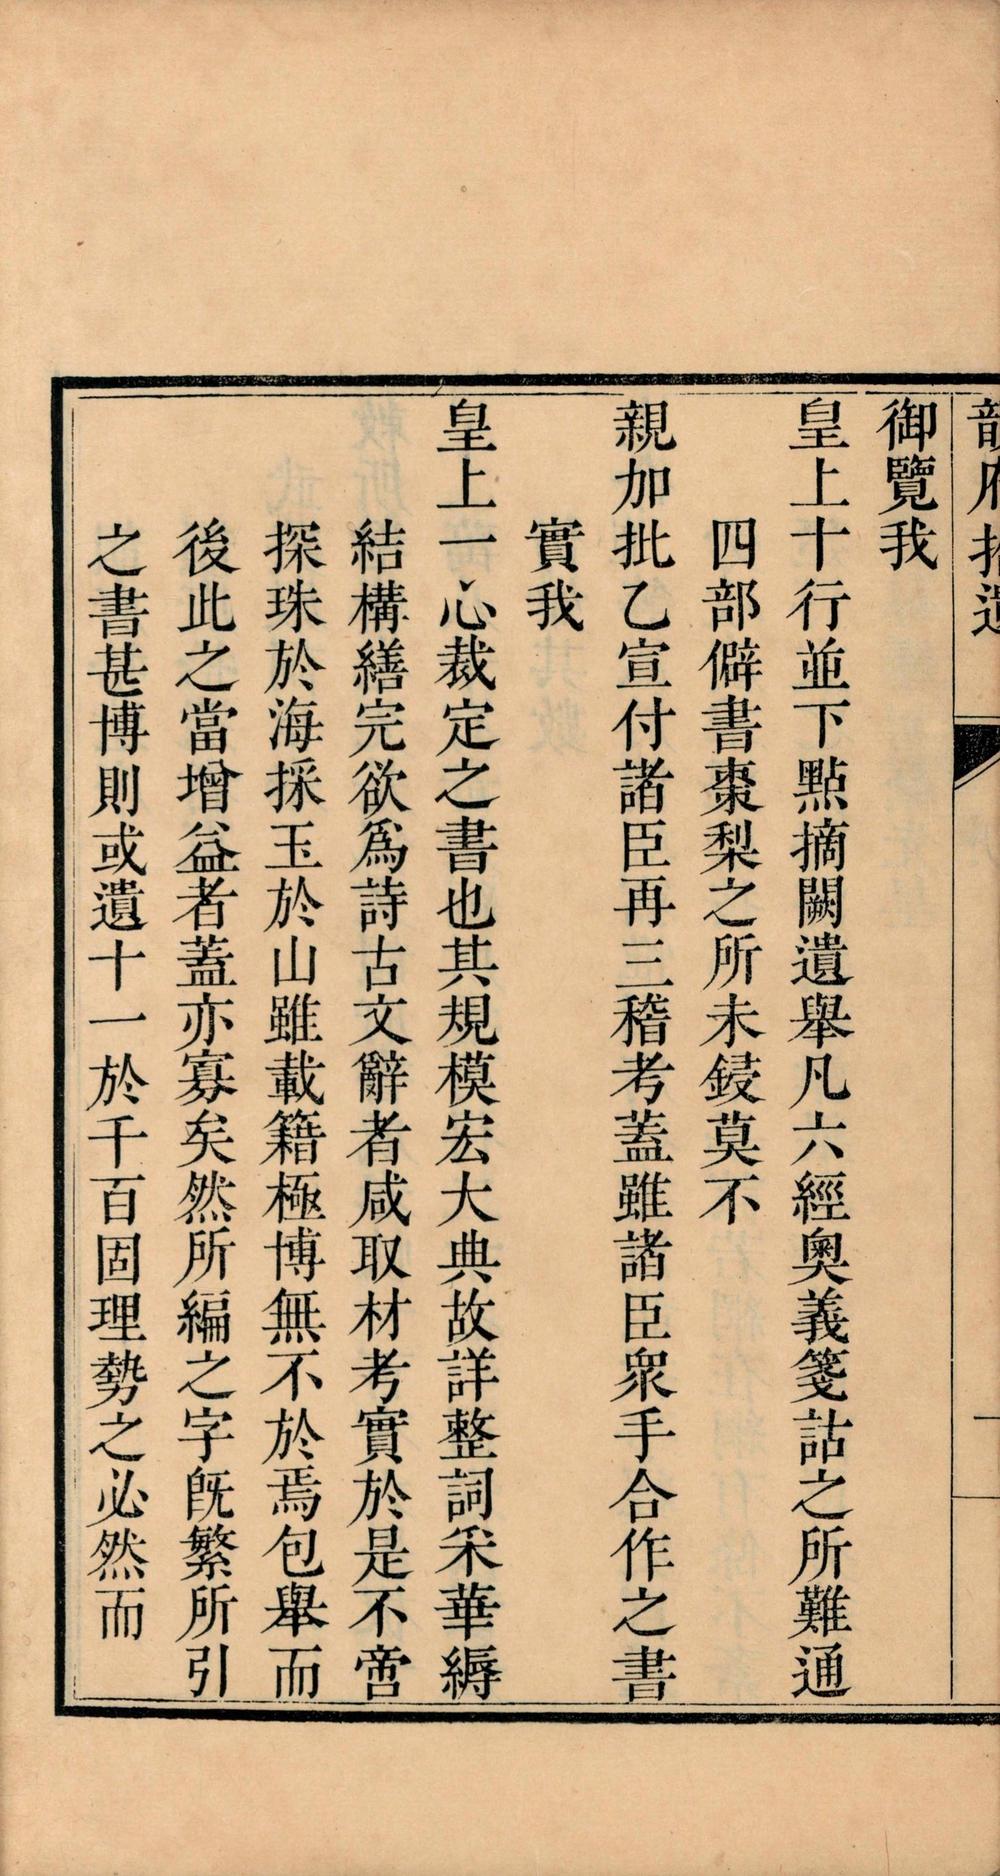 韻府拾遺
一
御覽我
皇上十行並下點摘闕遺舉凡六經奧義箋詁之所難通
四部僻書棗梨之所未鋟莫不
親加批乙宣付諸臣再三稽考蓋雖諸臣眾手合作之書
實我
皇上一心裁定之書也其規模宏大典故詳整詞采華縟
結構繕完欲爲詩古文辭者咸取材考實於是不啻
探珠於海採玉於山雖載籍極博無不於焉包舉而
後此之當增益者蓋亦寡矣然所編之字既繁所引
之書甚博則或遺十一於千百固理勢之必然而